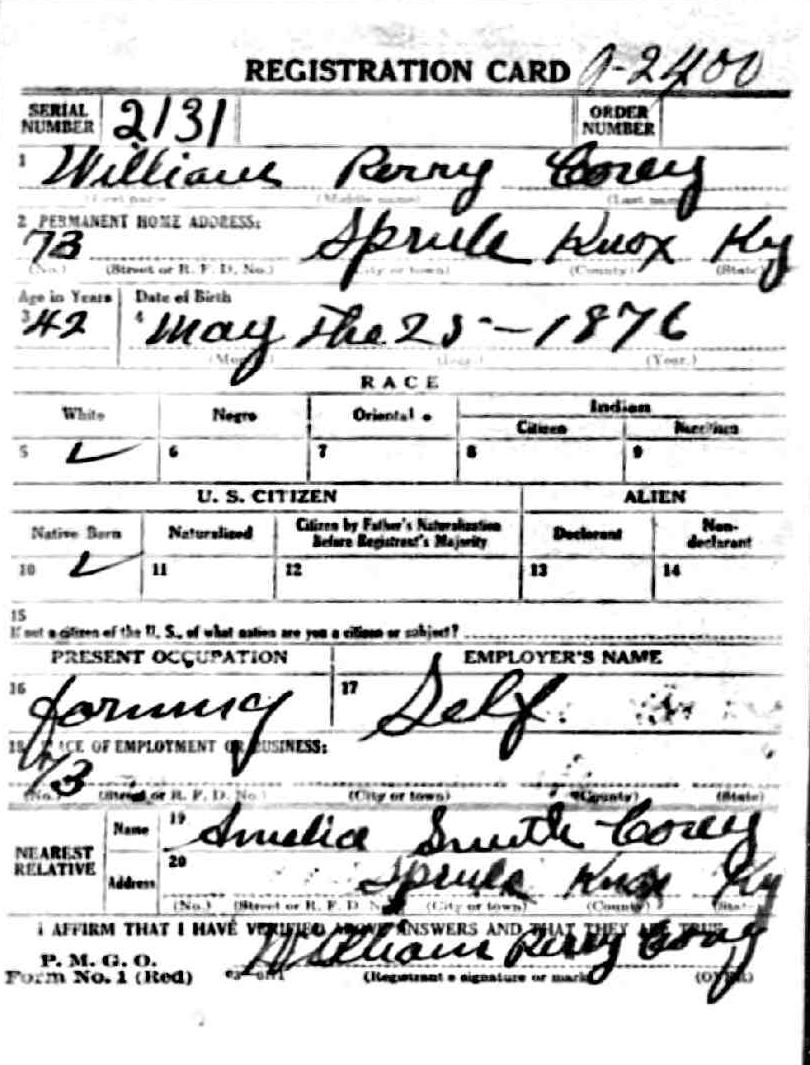 REGISTRATION CARD A-2400
SERIAL NUMBER 2131 ORDER NUMBER
1 William Perry Corey
(First name) (Middle name) (Last name)
2 PERMANENT HOME ADDRESS:
73 Sprule Knox Ky
(No.) (Street or R. F. D. No.) (City or town) (County) (State)
Age in Years Date of Birth
3 42 4 May the 25 - 1876
(Month.) (Day.) (Year.)
RACE
White Negro Oriental Indian
Citizen Noncitizen
5 6 7 8 9
U. S. CITIZEN ALIEN
Native Born Naturalized Citizen by Father's Naturalization Before Registrant's Majority Declarant Non-declarant
10 11 12 13 14
15
If not a citizen of the U. S., of what nation are you a citizen or subject?
PRESENT OCCUPATION EMPLOYER'S NAME
16 farming 17 Self
18 PLACE OF EMPLOYMENT OR BUSINESS:
73
(No.) (Street or R. F. D. No.) (City or town) (County) (State)
NEAREST RELATIVE
Name 19 Amelia Smith Corey
Address 20 Sprule Knox Ky
(No.) (Street or R. F. D. No.) (City or town) (County) (State)
I AFFIRM THAT I HAVE VERIFIED ABOVE ANSWERS AND THAT THEY ARE TRUE
P. M. G. O.
Form No. 1 (Red) William Perry Corey
(Registrant's signature or mark) (OVER)